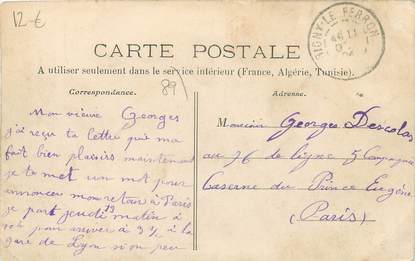 12-€
RIGNY-LE-FERRON
CARTE POSTALE
A utiliser seulement dans le service intérieur (France, Algérie, Tunisie).
89
Correspondance.
Adresse.
Mon vieux Georges
j'ai reçu ta lettre qui ma
fait bien plaisirs maintenant
je te met un mot pour
annoncer mon retour à Paris
je part jeudi 19 matin à
pour arriver à 3h à la
gare de Lyon si on peu
Monsieur Georges Descolas
au 76 de ligne 5 Compagnie
Caserne du Prince Eugène
(Paris)